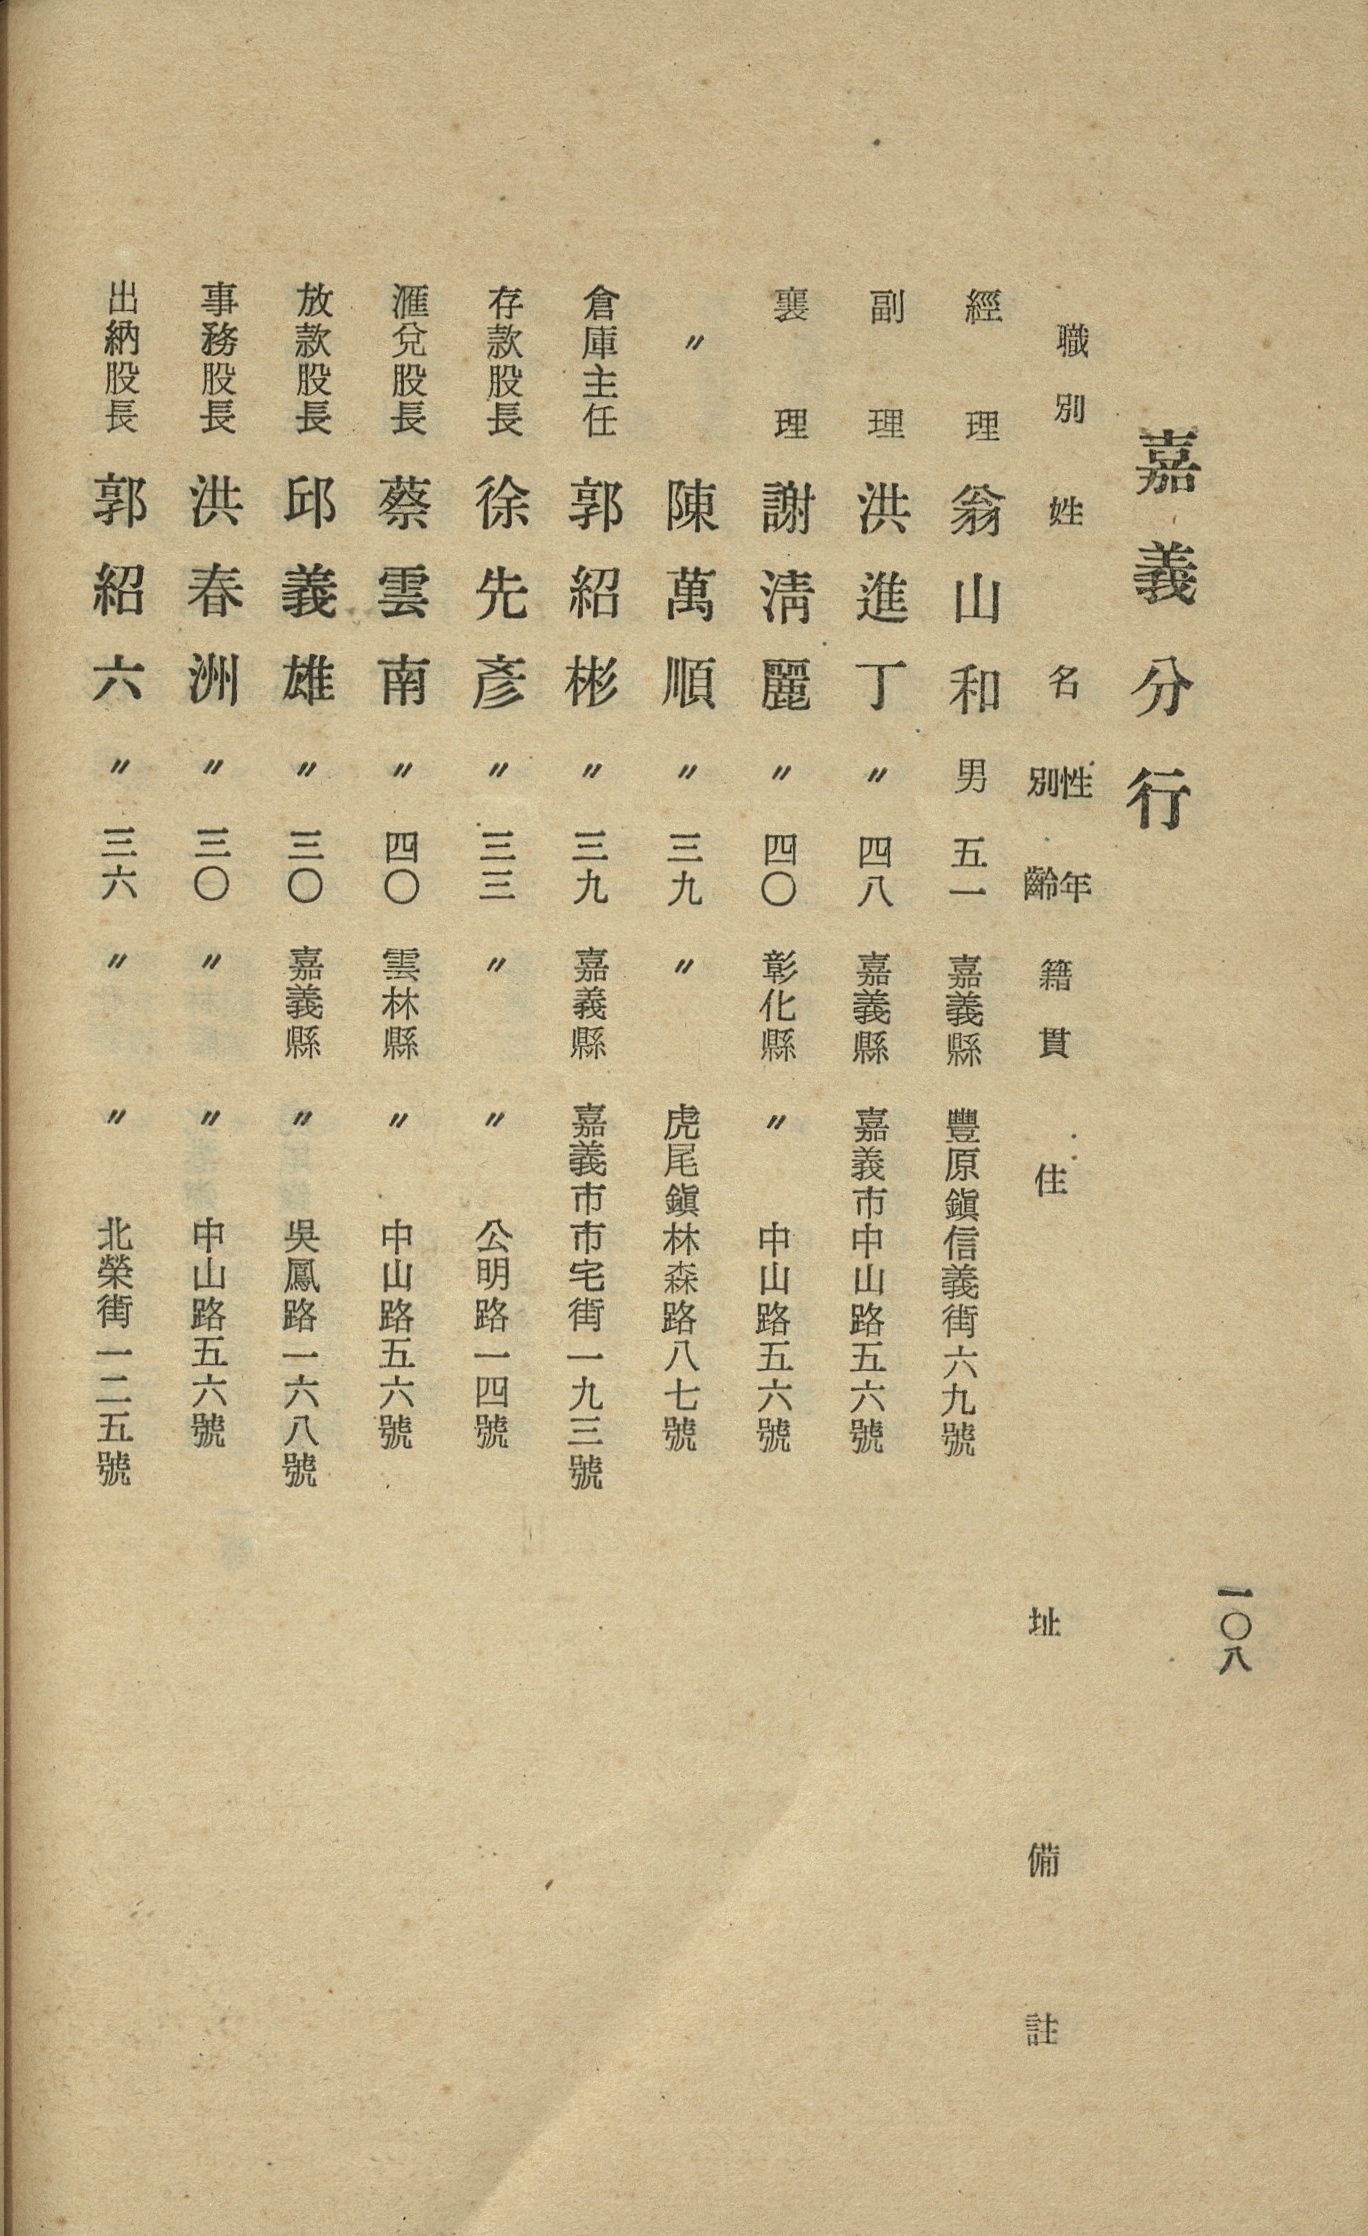 一〇八
嘉義分行
職別 姓名 性別 年齡 籍貫 住址 備註
經理 翁山和 男 五一 嘉義縣 豐原鎭信義街六九號
副理 洪進丁 〃 四八 嘉義縣 嘉義市中山路五六號
襄理 謝淸麗 〃 四〇 彰化縣 〃 中山路五六號
〃 陳萬順 〃 三九 〃 虎尾鎭林森路八七號
倉庫主任 郭紹彬 〃 三九 嘉義縣 嘉義市市宅街一九三號
存款股長 徐先彥 〃 三三 〃 〃 公明路一四號
滙兌股長 蔡雲南 〃 四〇 雲林縣 〃 中山路五六號
放款股長 邱義雄 〃 三〇 嘉義縣 〃 吳鳳路一六八號
事務股長 洪春洲 〃 三〇 〃 〃 中山路五六號
出納股長 郭紹六 〃 三六 〃 〃 北榮街一二五號